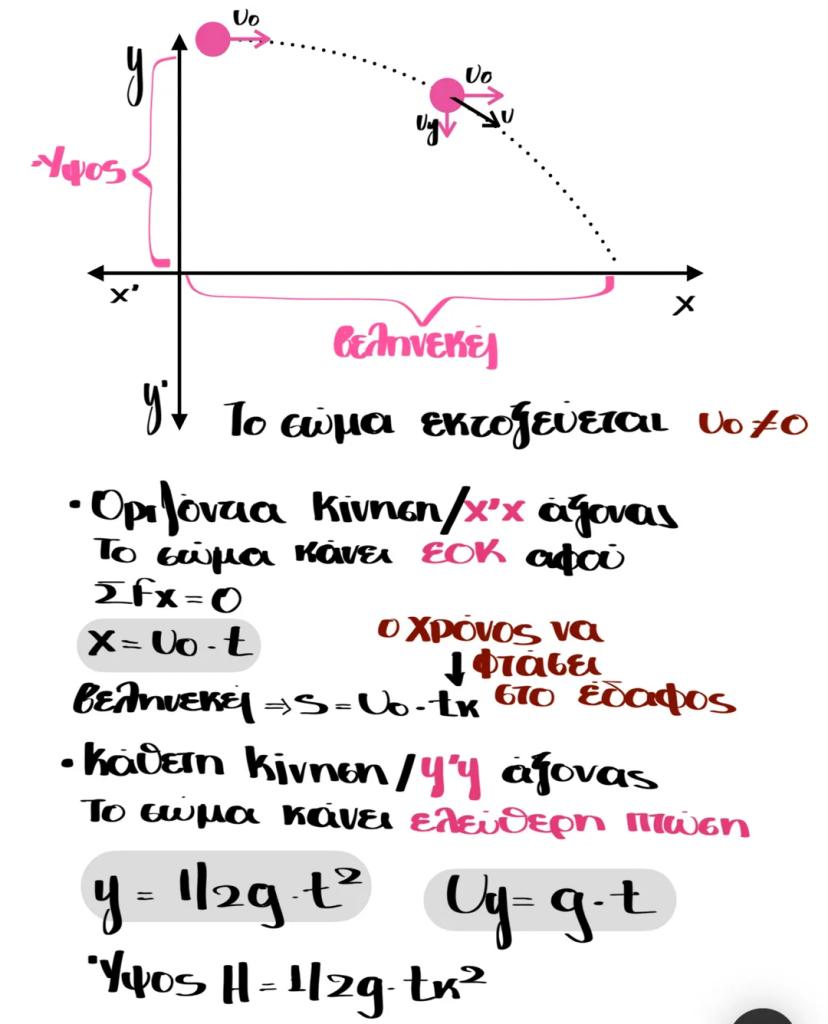 υο
y
υο
υy
υ
Ύψος
x'
x
βεληνεκές
y'
Το σώμα εκτοξεύεται υο≠0
• Οριζόντια κίνηση/x'x άξονας
Το σώμα κάνει ΕΟΚ αφού
ΣFx=0
x=υο·t
ο χρόνος να
↓ φτάσει
βεληνεκές ⇒ S=υο·tκ στο έδαφος
• Κάθετη κίνηση/y'y άξονας
Το σώμα κάνει ελεύθερη πτώση
y = 1/2g·t² υy= g·t
Ύψος H=1/2g·tκ²